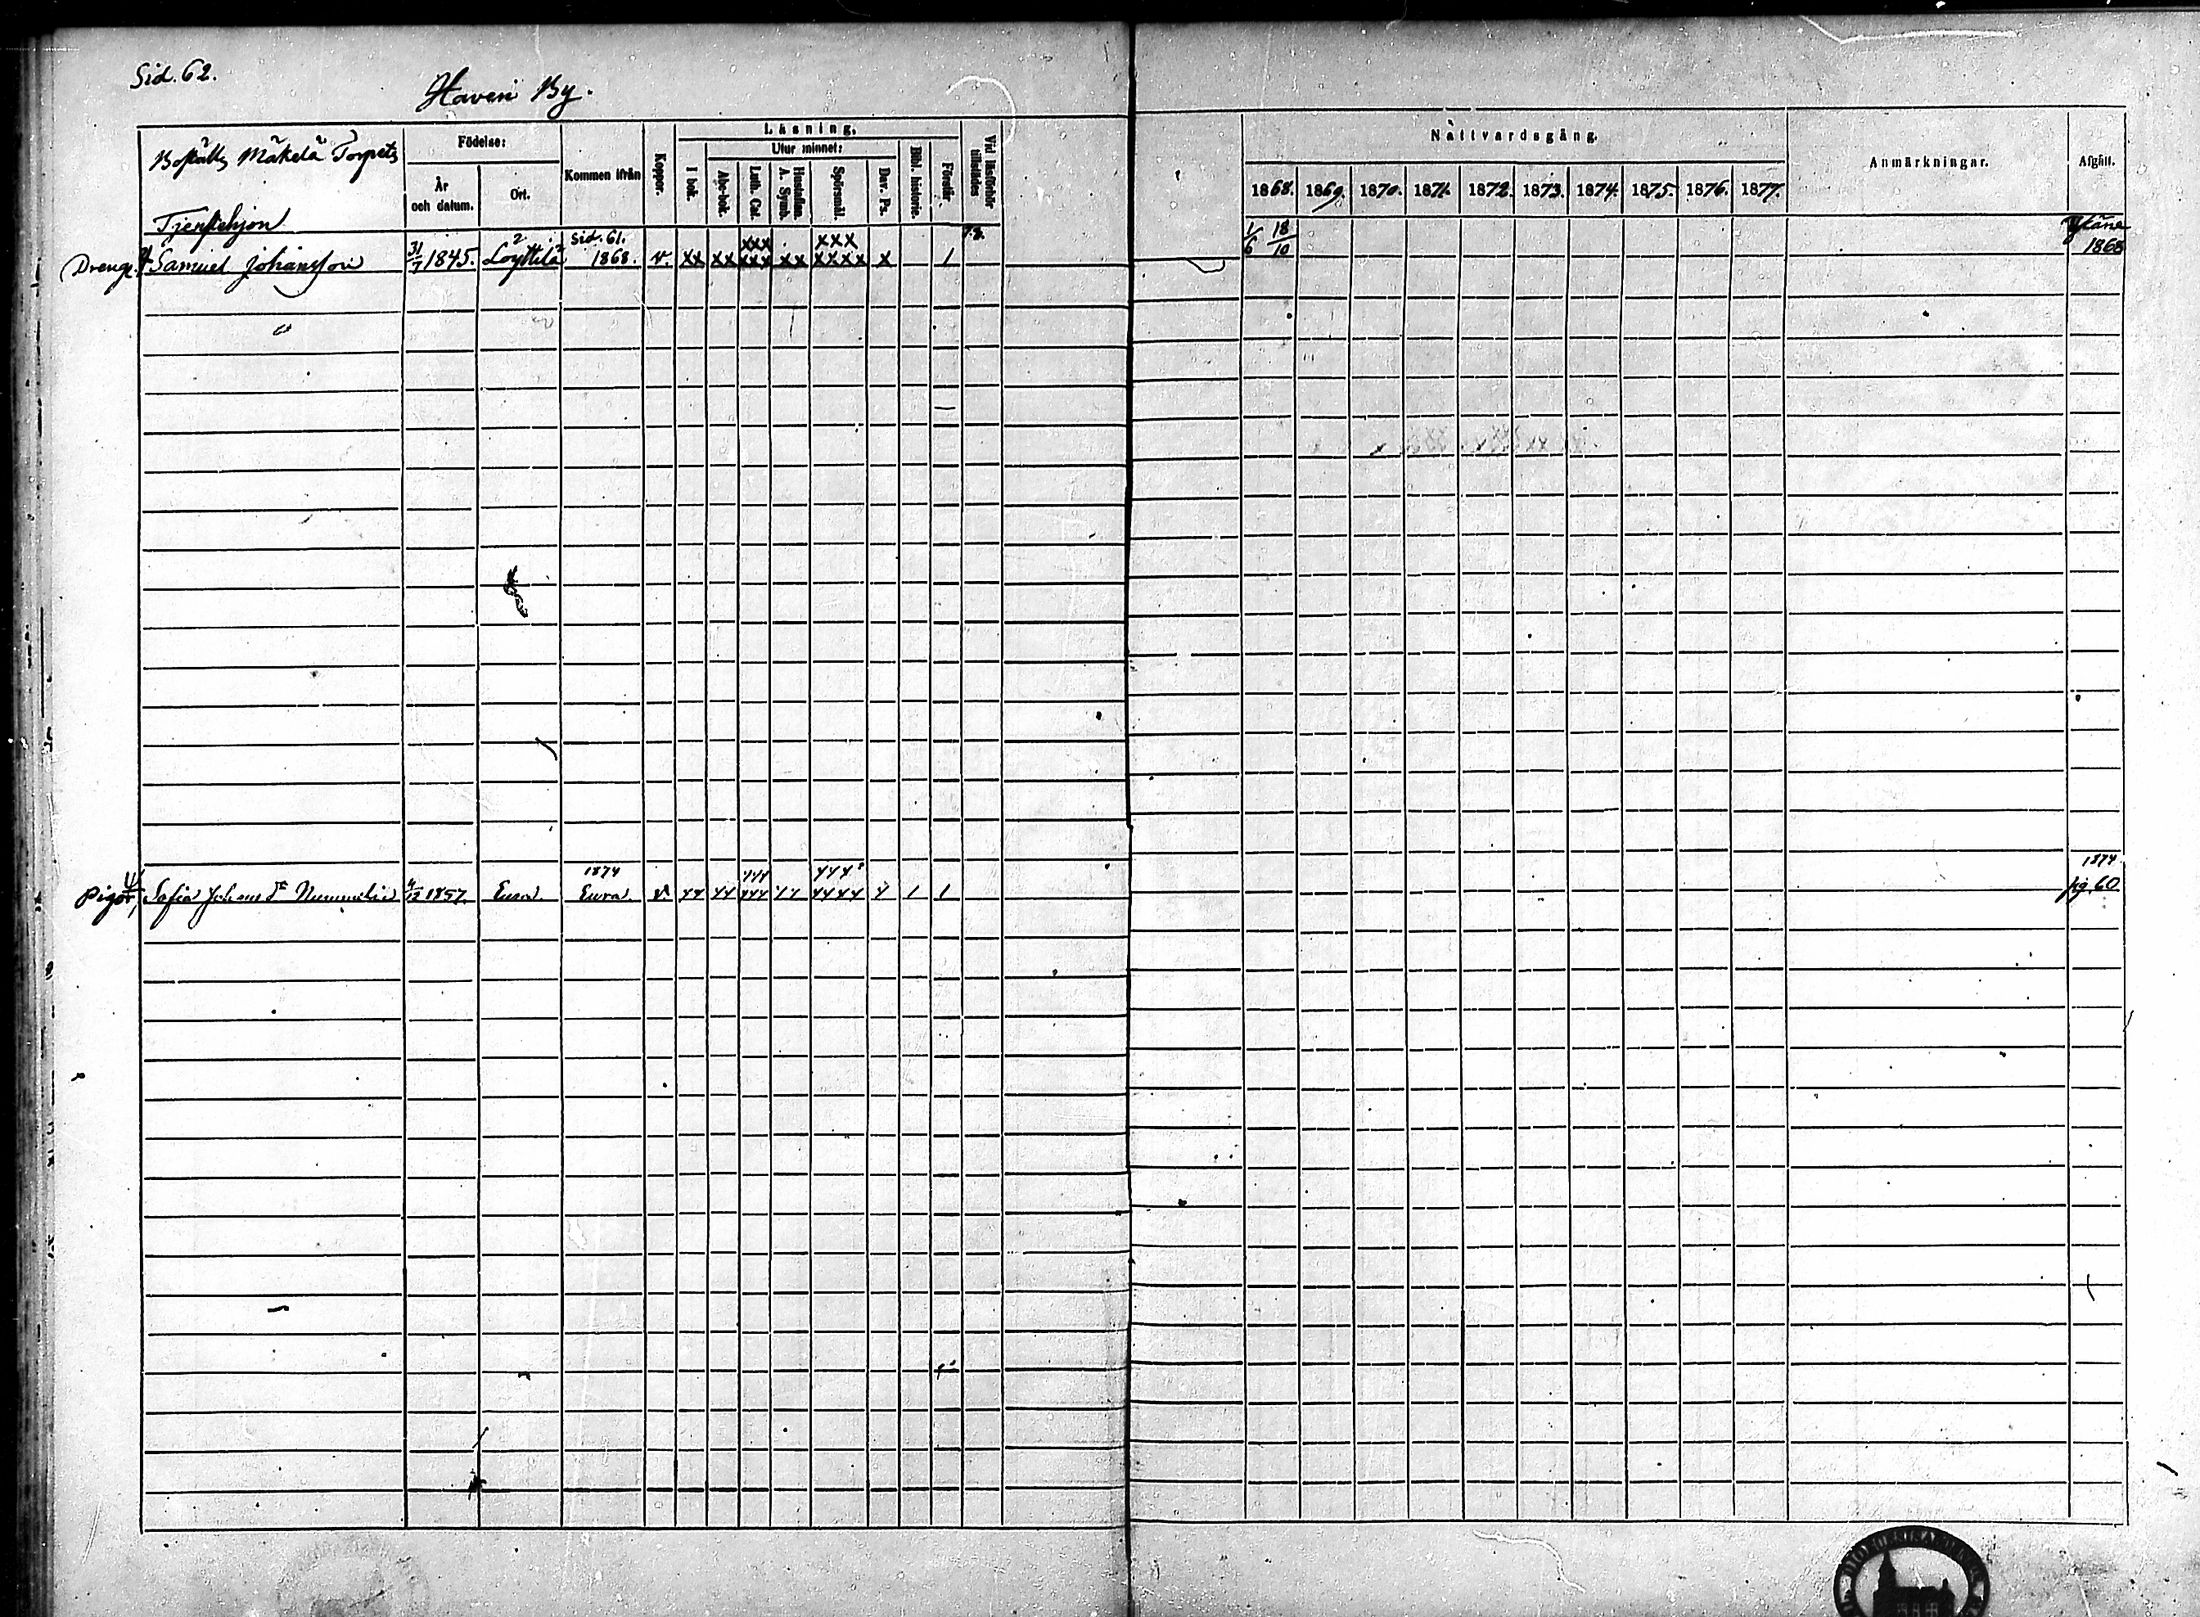 Sid. 62.
Haveri By.
Boställs Mäkelä Torpets
Födelse:
År och datum.
Ort.
Kommen ifrån
Koppor.
Läsning.
I bok.
Utur minnet:
Abc-bok.
Luth. Cat.
Hustaflan. A. Symb.
Spörsmål.
Dav. Ps.
Bibl. historie.
Förstår
Vid läsförhör tillstädes
Nattvardsgång.
1868. 1869. 1870. 1871. 1872. 1873. 1874. 1875. 1876. 1877.
Anmärkningar.
Afgått.
Tjenstehjon
Dreng. Samuel Johansson 31/7 1845. Löyttilä Sid. 61. 1868. v. xx xx xxx xxx xx xxx xxxx x 1 1/6 18/10 Yläne 1868
Pigor, Sofia Johans Dr 4/12 1857. Eura. 1874 Eura. v. 1 1 1874 pg. 60